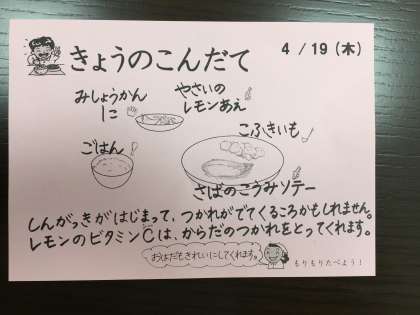 きょうのこんだて
4 / 19 (木)
みしょうかん
に
やさいの
レモンあえ
ごはん
こふきいも
さばのこうみソテー
しんがっきがはじまって、つかれがでてくるころかもしれません。
レモンのビタミンCは、からだのつかれをとってくれます。
おはだもきれいにしてくれます。
もりもりたべよう！